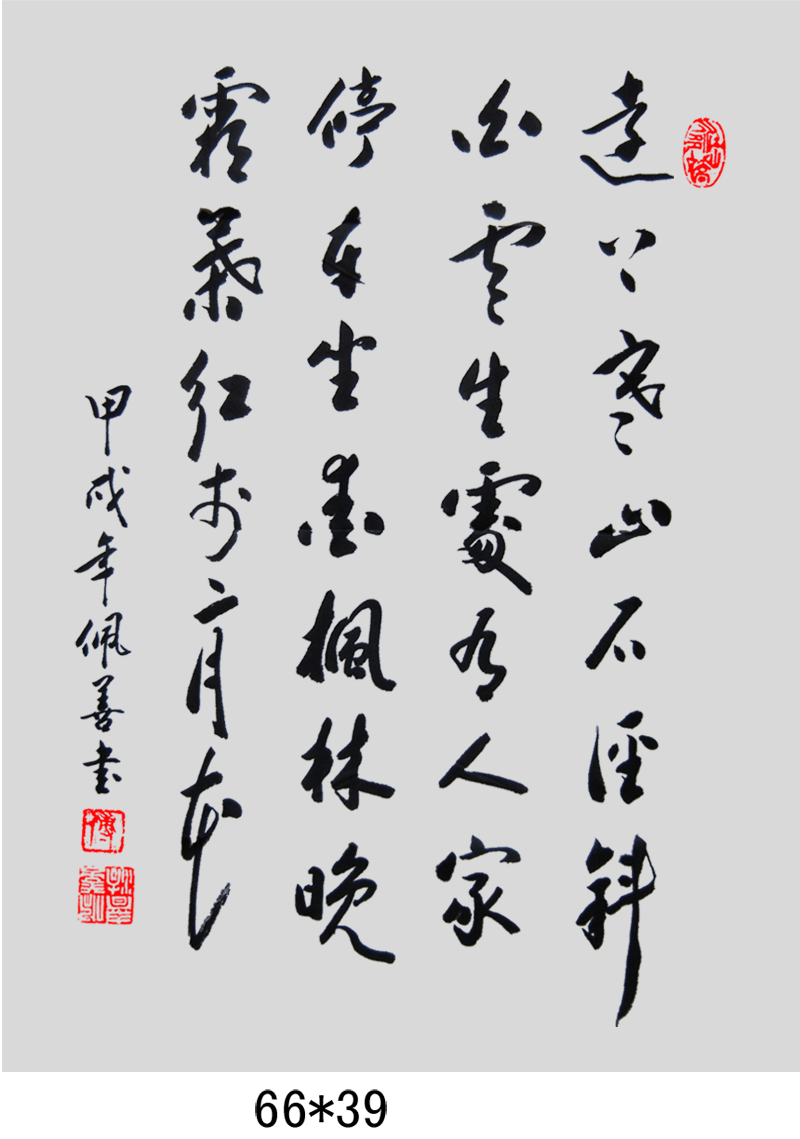 遠上寒山石徑斜
白雲生處有人家
停車坐愛楓林晚
霜葉紅於二月花
甲戌年佩善書
66*39